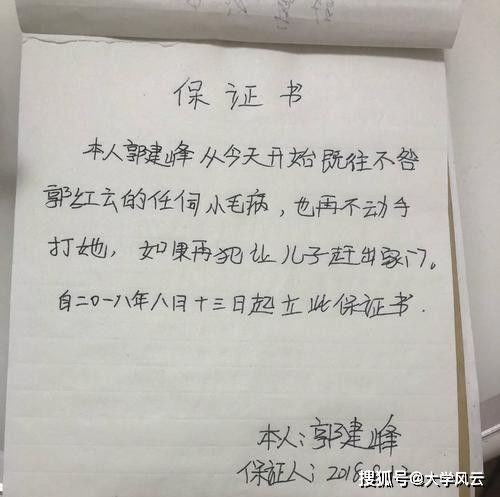 保证书
本人郭建峰从今天开始既往不咎
郭红云的任何小毛病，也再不动手
打她，如果再犯让儿子赶出家门。
自二〇一八年八月十三日起立此保证书.
本人：郭建峰
保证人：2018.
搜狐号@大学风云